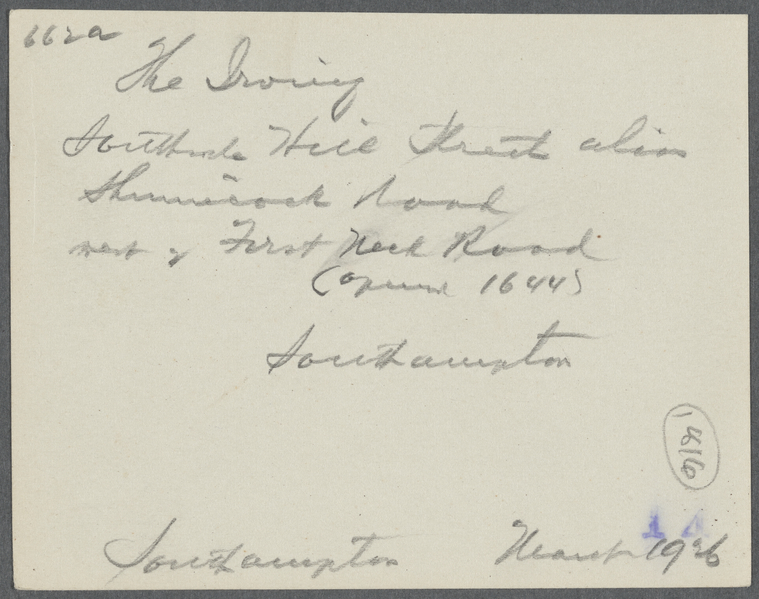 662a
The Irving
Southside Hill Street alias
Shinnecock Road
west of First Neck Road
(opened 1644)
Southampton
1816
14
Southampton March 1926